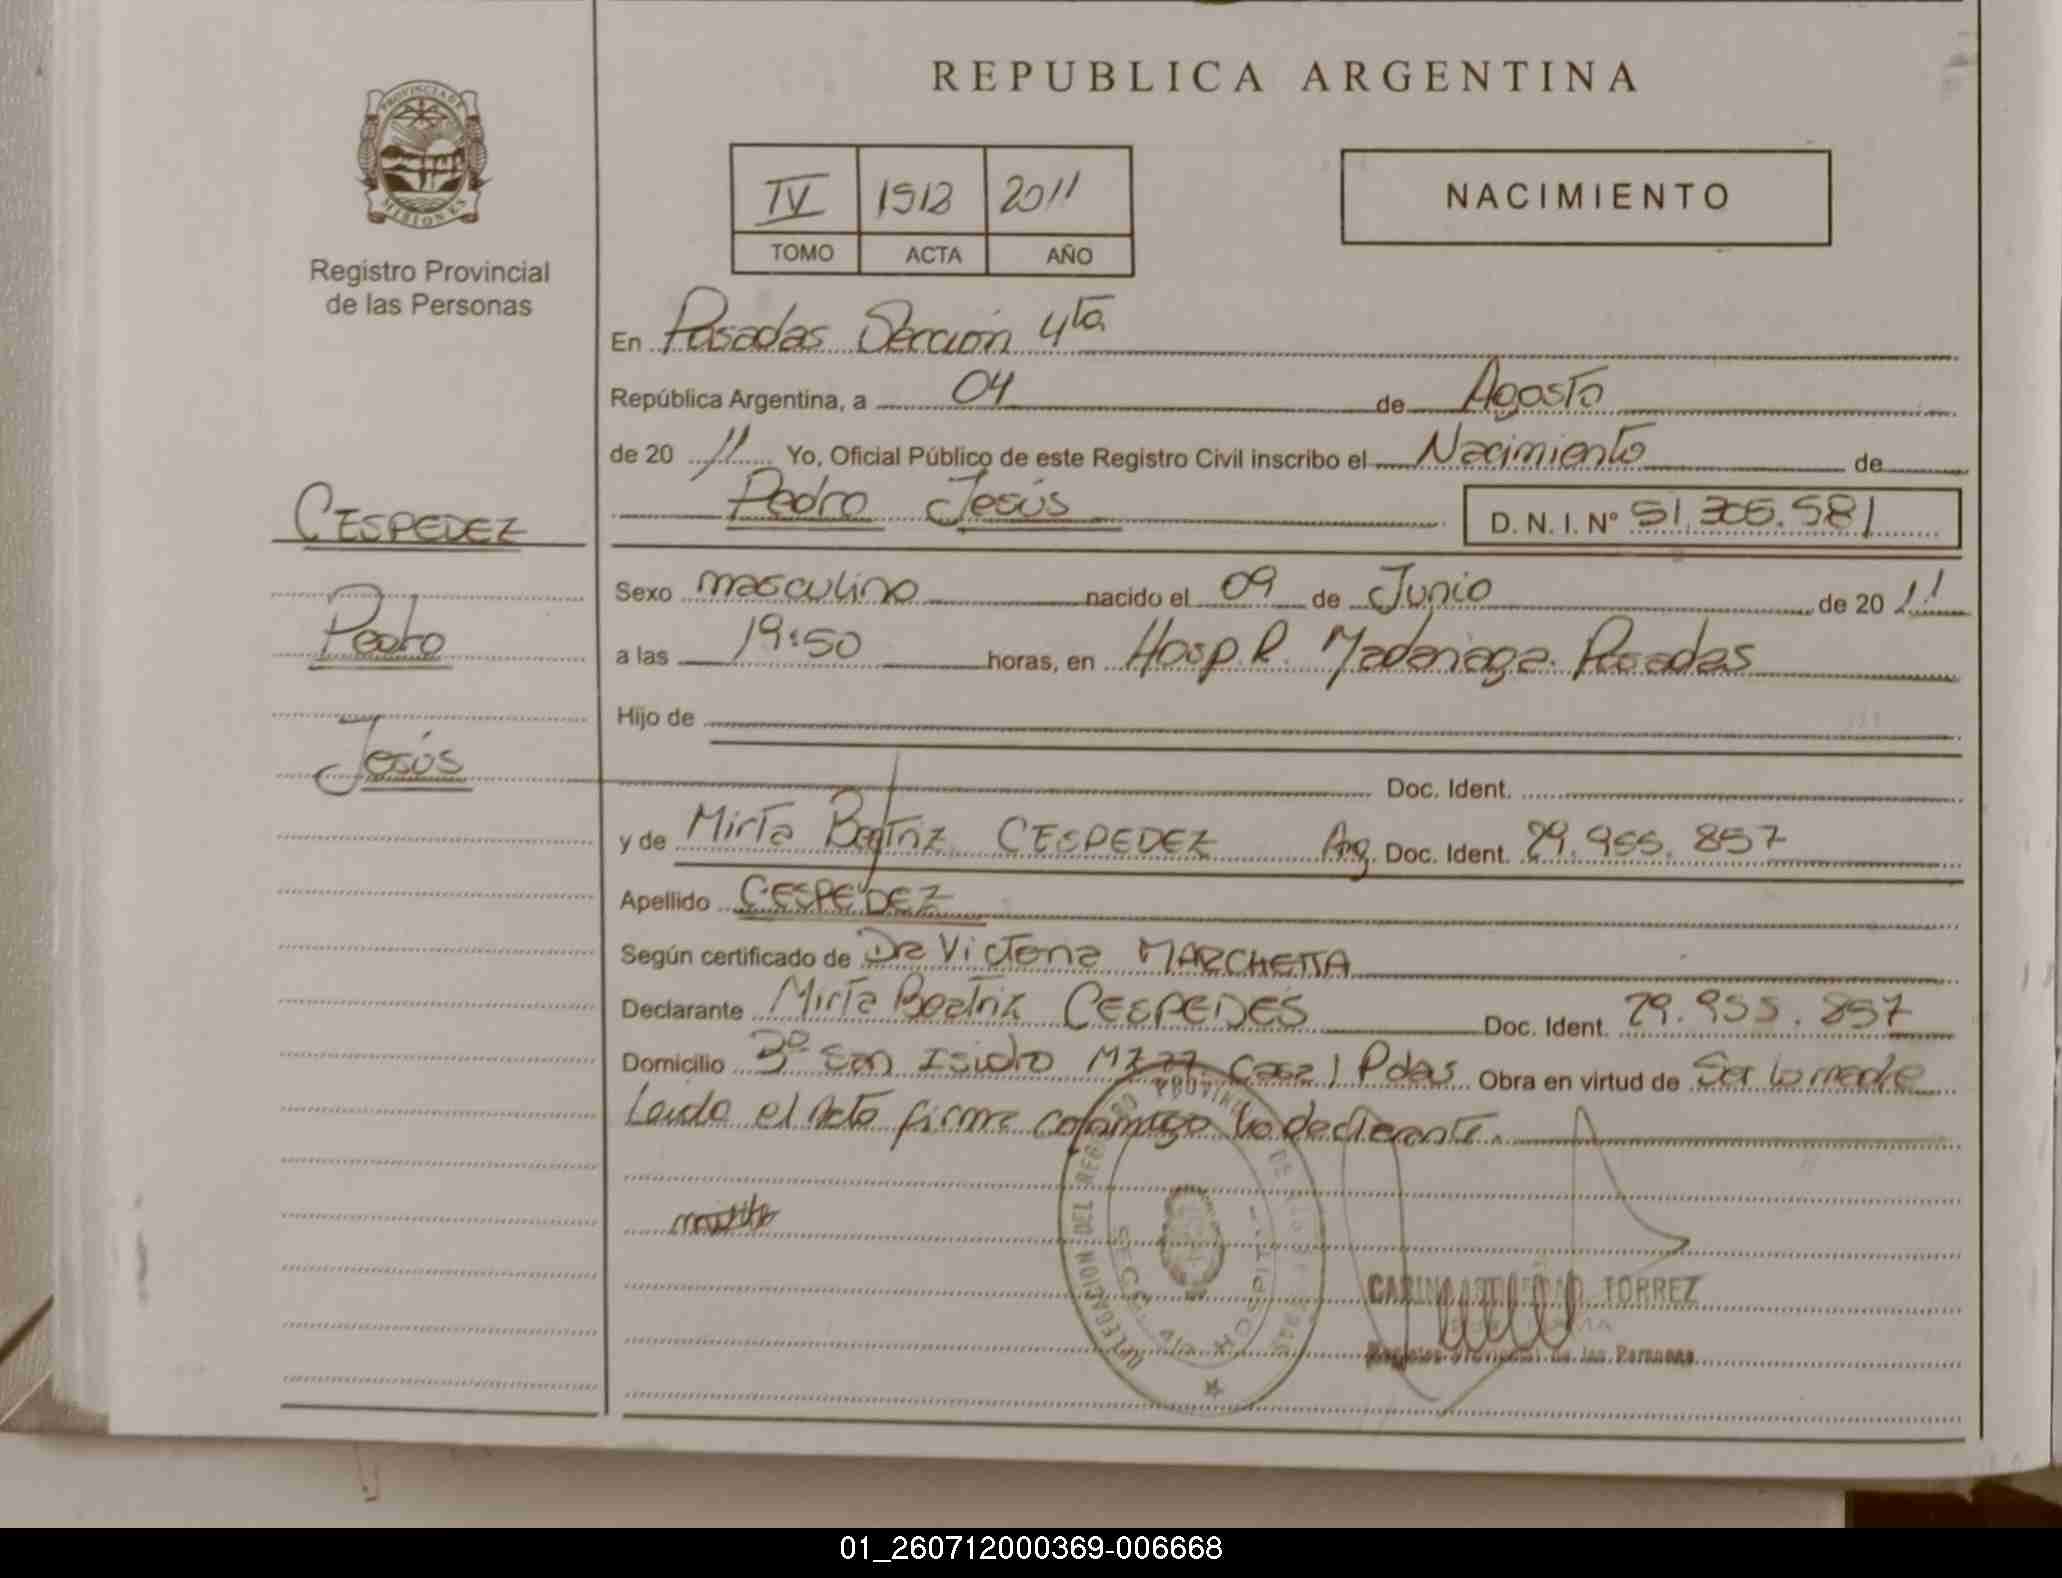 REPUBLICA ARGENTINA
PROVINCIA DE
MISIONES
Registro Provincial
de las Personas
IV 1512 2011
TOMO ACTA AÑO
NACIMIENTO
En Posadas Sección 4ta
República Argentina, a 04 de Agosto
de 20 11 Yo, Oficial Público de este Registro Civil inscribo el Nacimiento de
Pedro Jesús D. N. I. Nº 51.305.581
CESPEDEZ
Pedro
Jesús
Sexo masculino nacido el 09 de Junio de 20 11
a las 19:50 horas, en Hosp. R. Madariaga. Posadas
Hijo de
Doc. Ident.
y de Mirta Beatriz CESPEDEZ Arg. Doc. Ident. 29.955.857
Apellido CESPEDEZ
Según certificado de Dra Victoria MARCHETTA
Declarante Mirta Beatriz CESPEDES Doc. Ident. 29.955.857
Domicilio Bº San Isidro MZ 77 Casa 1 Pdas Obra en virtud de Ser la madre
Leida el Acta firma conmigo la declarante.
DELEGACION DEL REGISTRO PROVINCIAL DE LAS PERSONAS
SECC. 4ta
TORREZ
Registro Provincial de las Personas
01_260712000369-006668